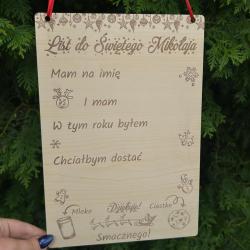 List do Świętego Mikołaja
Mam na imię
I mam
W tym roku byłem
Chciałbym dostać
Dziękuję!
Mleko
Ciastko
Smacznego!